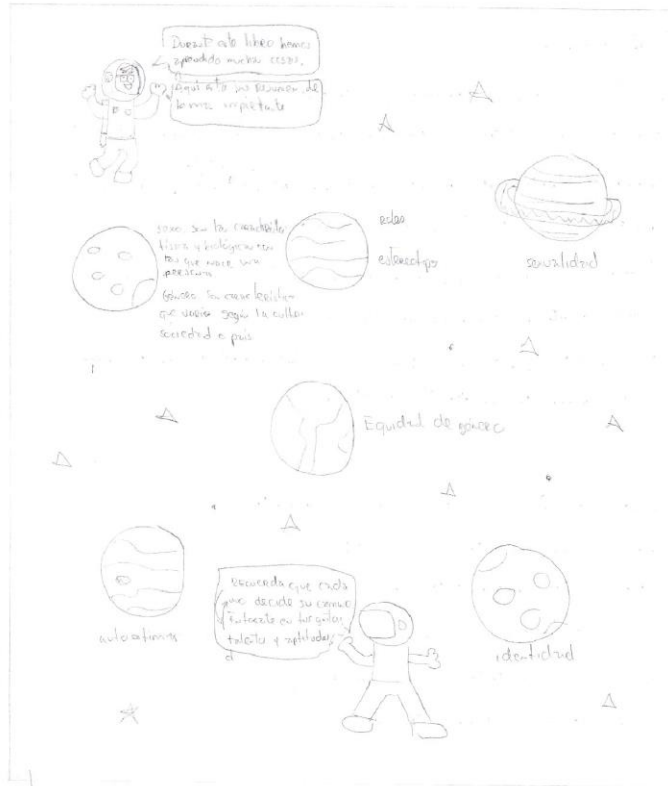 Durante este libro hemos
aprendido muchas cosas.
Aquí esta un resumen de
lo mas importante
sexo son las
fisicas y biológicas con
las que nace una
persona
Género son características
que varian según la cultura
sociedad o pais
roles
estereotipos
sexualidad
Equidad de género
autoestima
recuerda que cada
uno decide su camino
en tus gustos
talentos y aptitudes
identidad